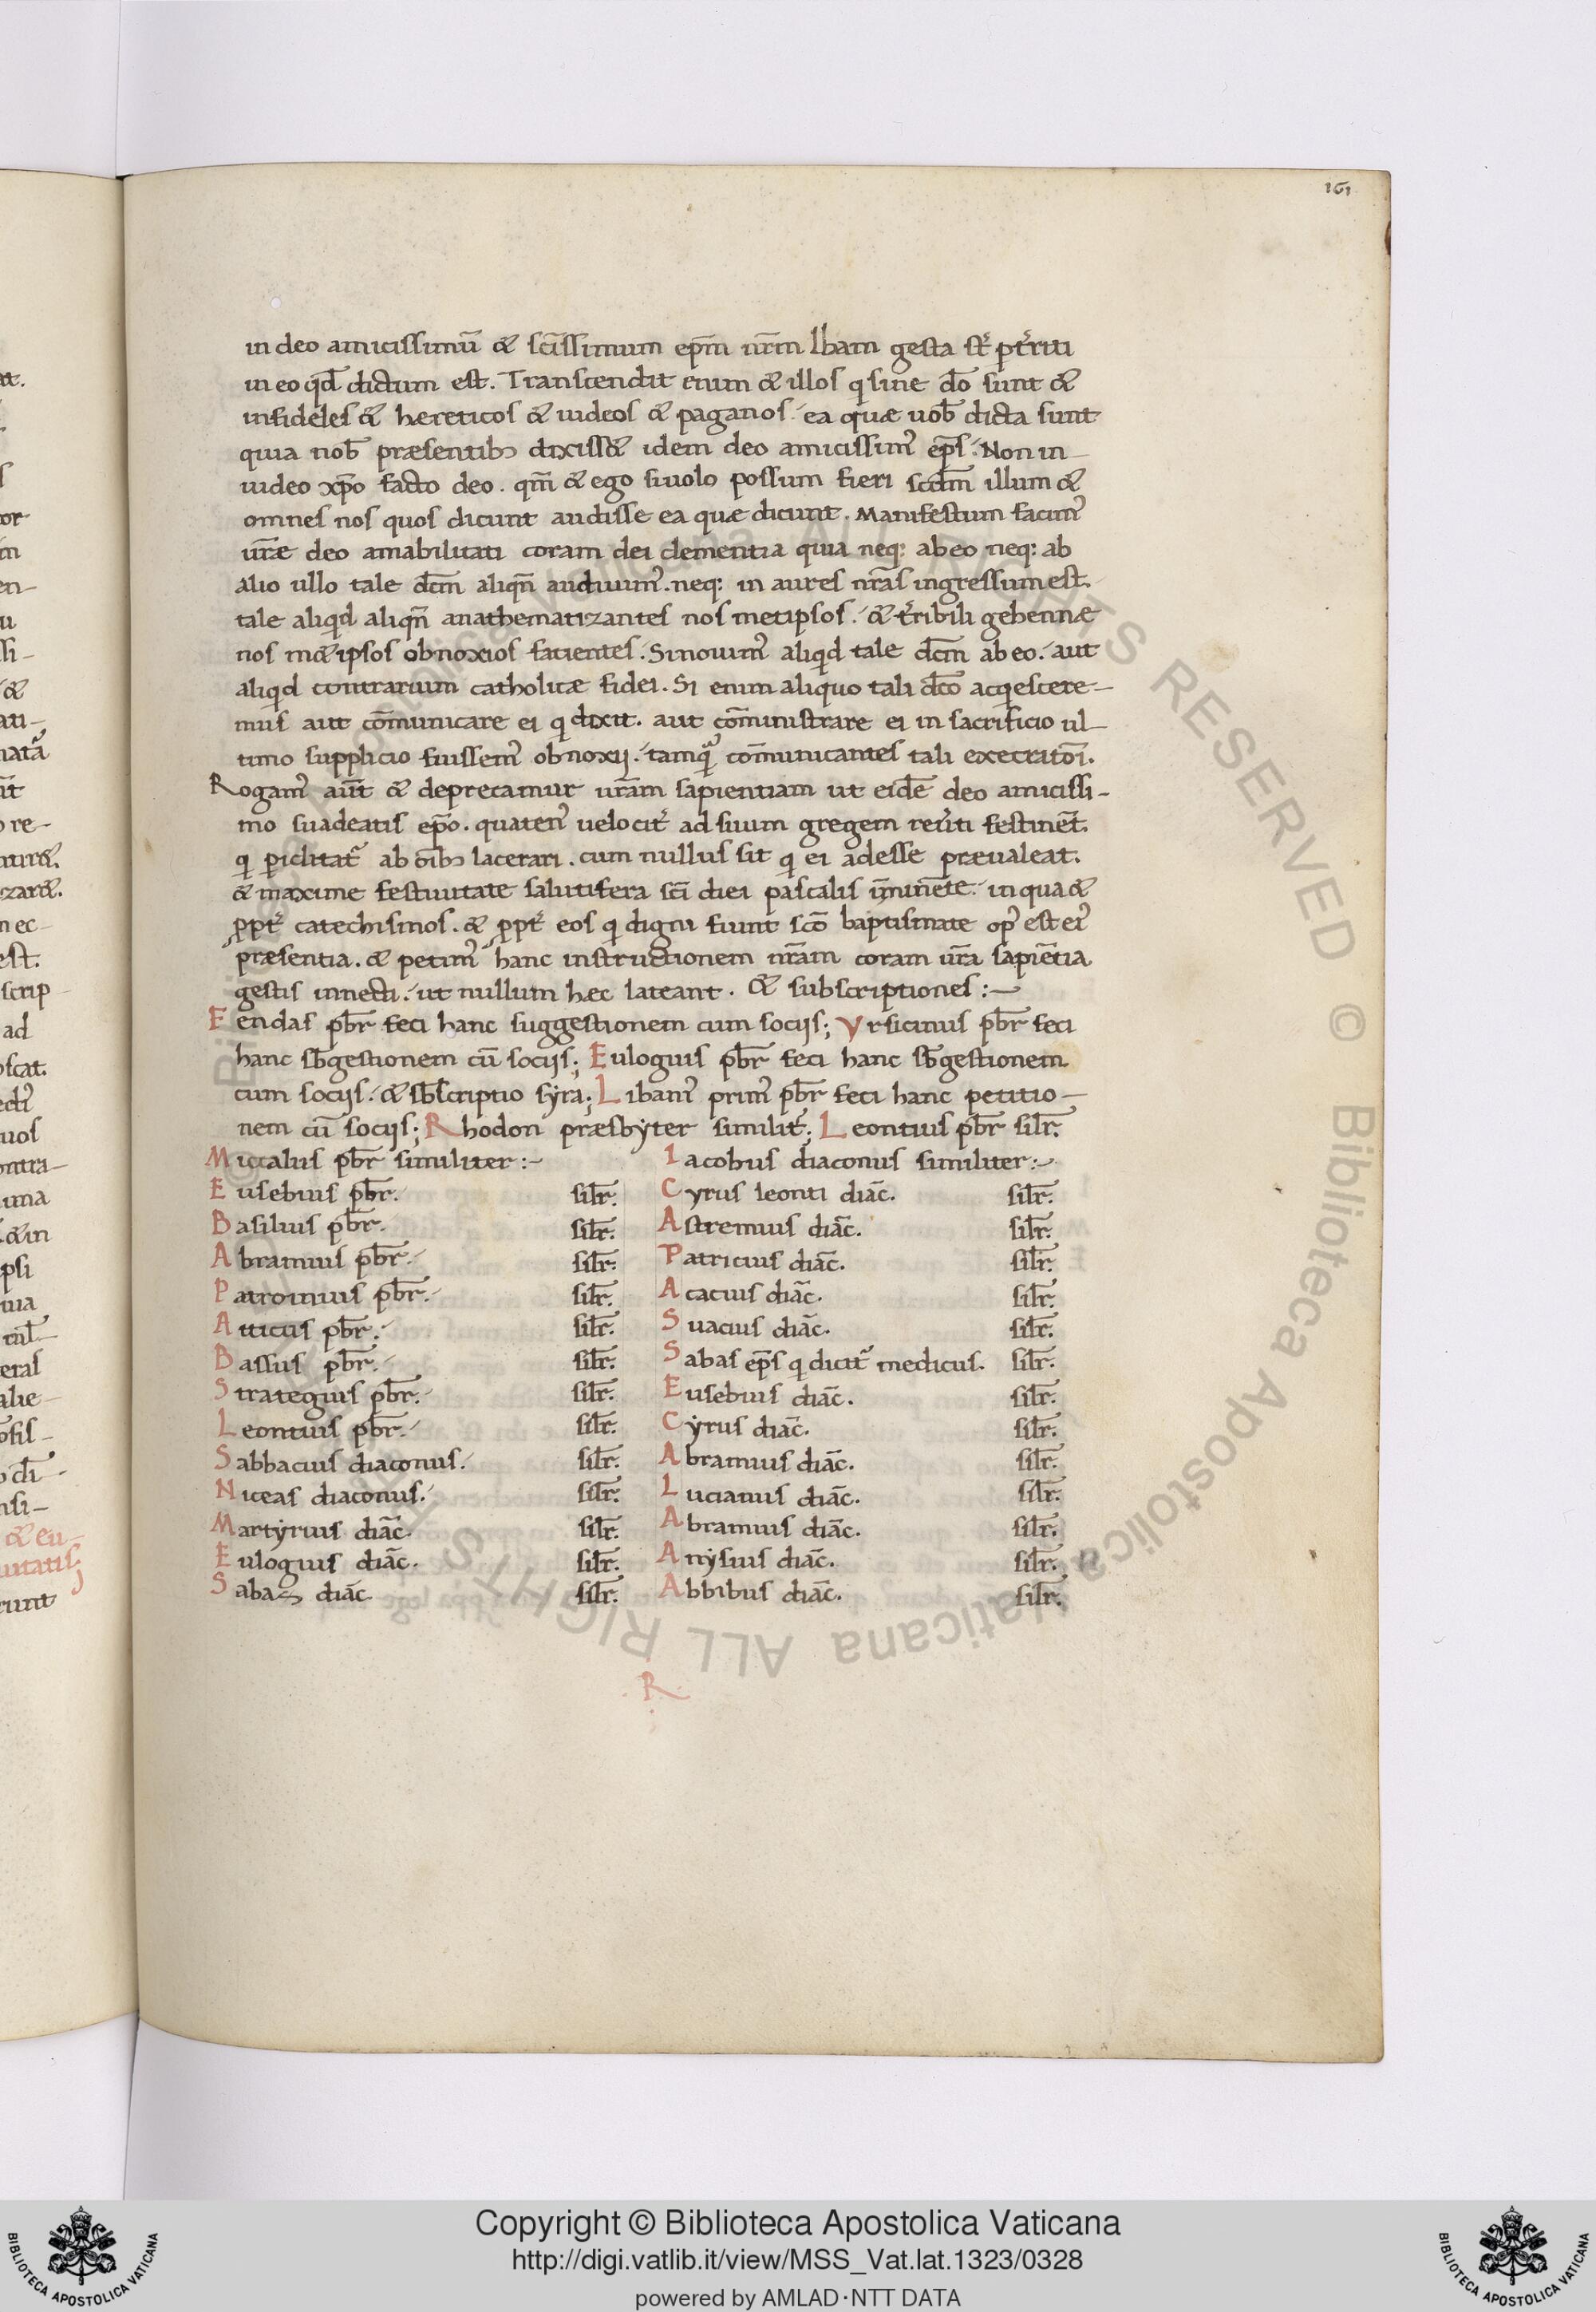 161
in deo amicissimū & scīssimum ep̄m ur̄m Ibam gesta st̄ pt̄rriti
in eo qd̄ dictum est. Transcendit enim & illos q sine dō sunt &
infideles & hereticos & iudeos & paganos. ea quæ uob̄ dicta sunt
quia nob̄ præsentib; dixiss& idem deo amicissim' ep̄s. Non in
uideo xp̄o facto deo. qm̄ & ego si uolo possum fieri scdm̄ illum &
omnes nos quos dicunt audisse ea quæ dicunt. Manifestum facim'
ur̄æ deo amabilitati coram dei clementia quia neq: ab eo neq: ab
alio ullo tale dc̄m aliqn̄ audiuim'. neq: in aures nr̄as ingressum est.
tale aliqd aliqn̄ anathematizantes nos metipsos. & t̄ribili gehennæ
nos m&ipsos obnoxios facientes. Si nouim' aliqd tale dc̄m ab eo. aut
aliqd contrarium catholicæ fidei. Si enim aliquo tali dc̄o acqescere-
mus aut cōmunicare ei q dixit. aut cōministrare ei in sacrificio ul-
timo supplicio fuissem' obnoxij. tamqª cōmunicantes tali execratōī.
Rogam' aūt & deprecamur ur̄am sapientiam ut eidē deo amicissi-
mo suadeatis ep̄o. quaten' uelocit̄ ad suum gregem reūti festinēt.
q p̱iclitat̄ ab oīb; lacerari. cum nullus sit q ei adesse præualeat.
& maxime festiuitate salutifera scī diei pascalis īminēte. in qua &
p̱pt̄ catechismos. & p̱pt̄ eos q digni fiunt scō baptismate op' est ei'
præsentia. & petim' hanc instructionem nr̄am coram ur̄a sapiētia
gestis innecti. ut nullum hæc lateant. & subscriptiones :~
Fendas pb̄r feci hanc suggestionem cum socijs; Vrsicinus pb̄r feci
hanc sb̄gestionem cū socijs; Eulogius pb̄r feci hanc sb̄gestionem
cum socijs. & sb̄scriptio syra; Liban' prim' pb̄r feci hanc petitio-
nem cū socijs; Rhodon præsbyter similit̄; Leontius pb̄r silr̄.
Miccalus pb̄r similiter :~ Iacobus diaconus similiter :~
Eusebius pb̄r. silr̄. Cyrus leonti diāc. silr̄.
Basilius pb̄r. silr̄. Astremius diāc. silr̄.
Abramius pb̄r. silr̄. Patricius diāc. silr̄.
Patroinius pb̄r. silr̄. Acacius diāc. silr̄.
Atticus pb̄r. silr̄. Suacius diāc. silr̄.
Bassus pb̄r. silr̄. Sabas ep̄s q dicit̄ medicus. silr̄.
Strategius pb̄r. silr̄. Eusebius diāc. silr̄.
Leontius pb̄r. silr̄. Cyrus diāc. silr̄.
Sabbacius diaconus. silr̄. Abramius diāc. silr̄.
Niceas diaconus. silr̄. Lucianus diāc. silr̄.
Martyrius diāc. silr̄. Abramius diāc. silr̄.
Eulogius diāc. silr̄. Anysius diāc. silr̄.
Sabas diāc. silr̄. Abbibus diāc. silr̄.
.R.
Copyright © Biblioteca Apostolica Vaticana
http://digi.vatlib.it/view/MSS_Vat.lat.1323/0328
powered by AMLAD·NTT DATA